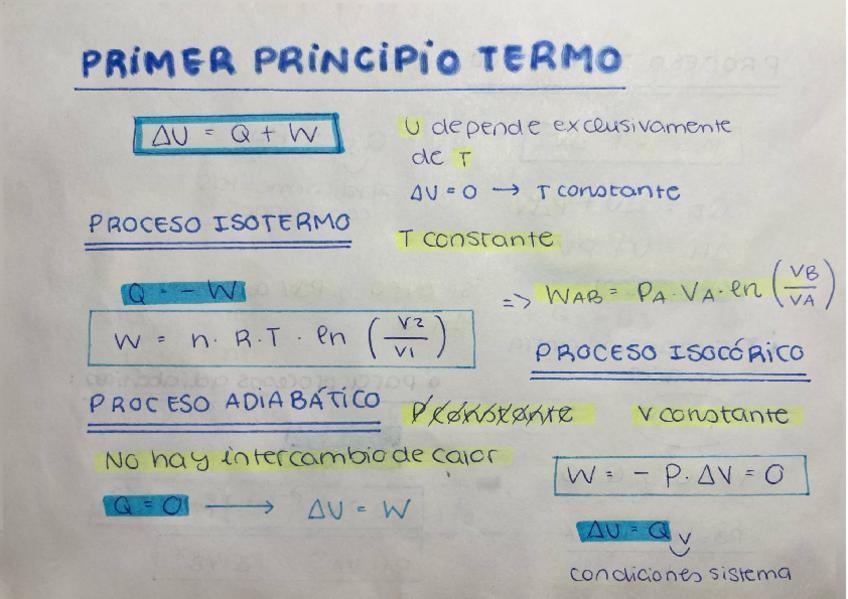 PRIMER PRINCIPIO TERMO
ΔU = Q + W
U depende exclusivamente
de T
ΔU = 0 → T constante
PROCESO ISOTERMO
T constante
Q = - W
=> WAB = PA · VA · ln (VB/VA)
W = n · R · T · ln (V2/V1)
PROCESO ISOCÓRICO
PROCESO ADIABÁTICO
P constante
V constante
No hay intercambio de calor
W = - P · ΔV = 0
Q = 0 → ΔU = W
ΔU = Qv
condiciones sistema